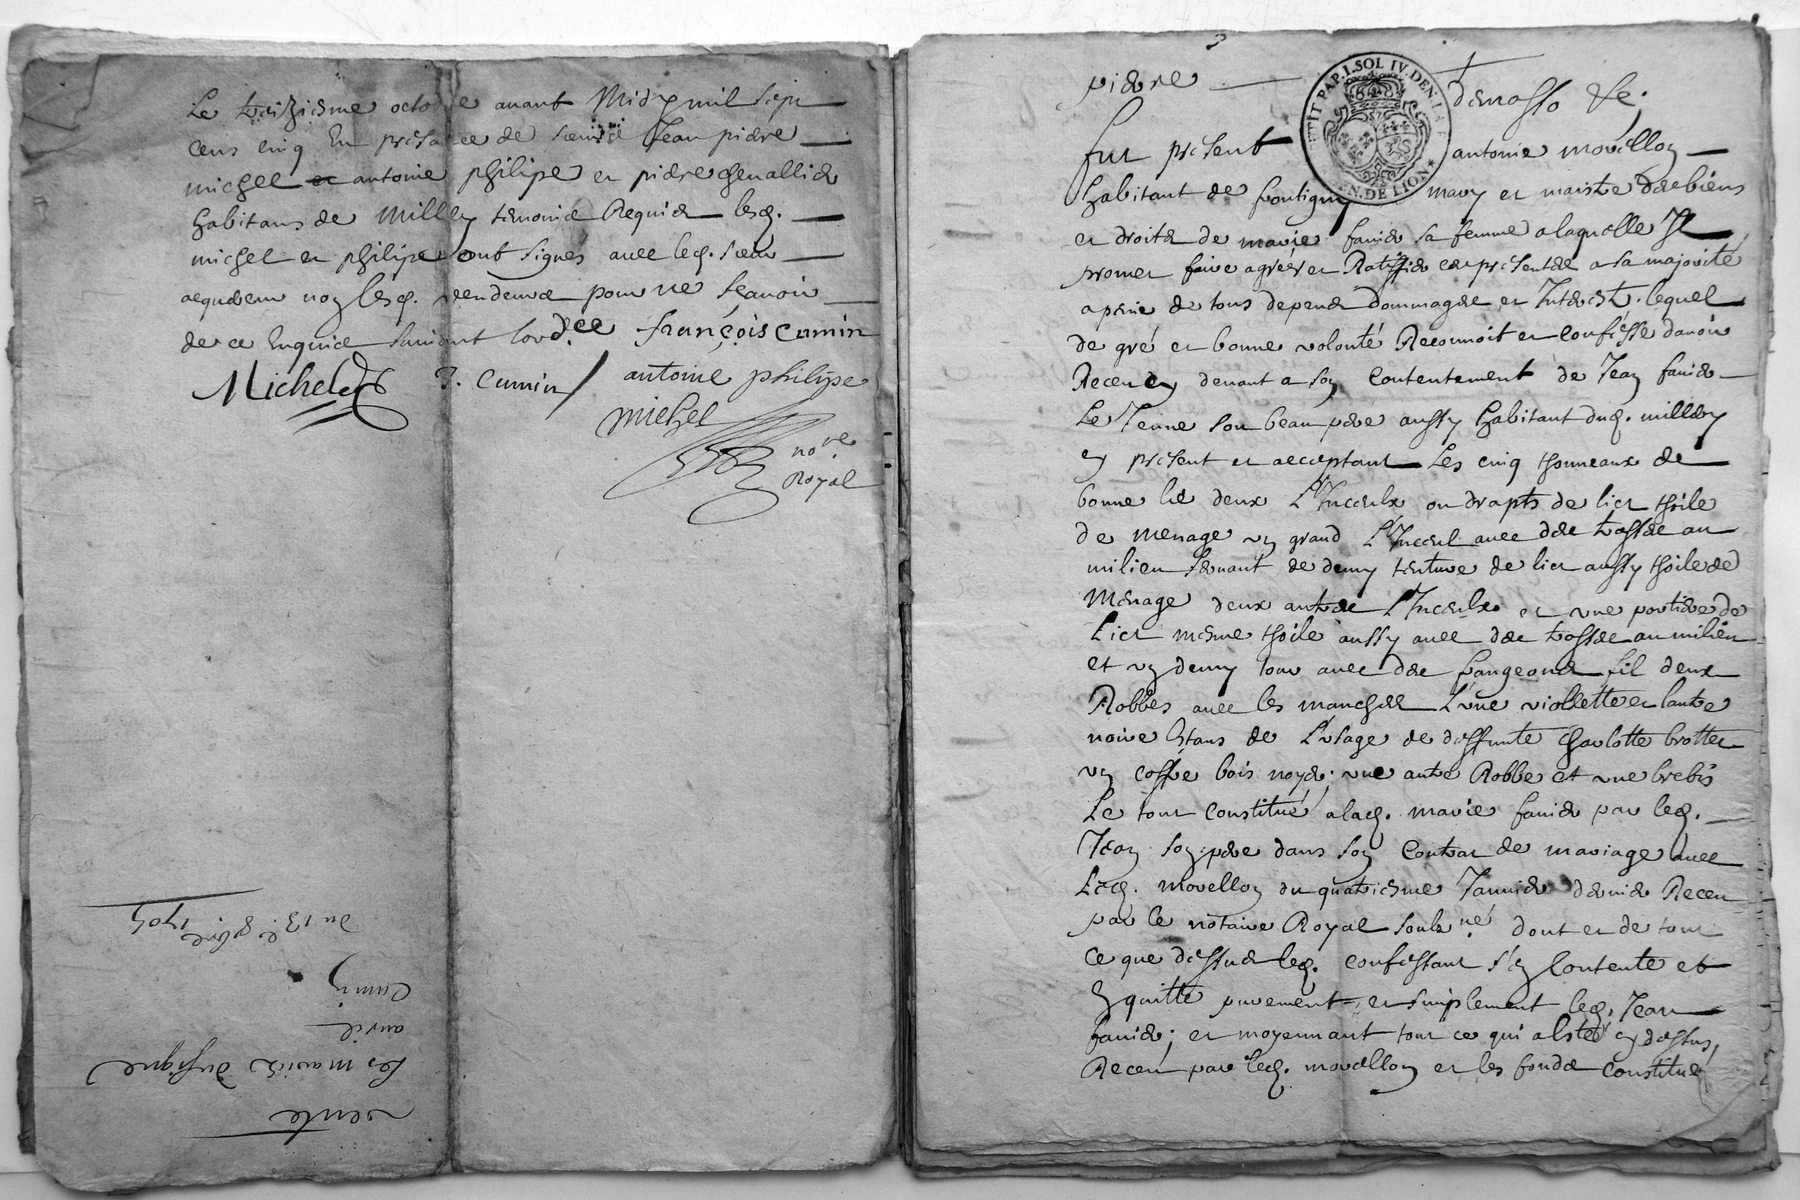 Le treiziesme octobre avant Midy mil sept
cens cinq En presance de Jean pierre
michel et antoine philipe et pierre chevallier
habitans de Millery temoins Requis lesd.
michel et philipe ont signés avec led. sieur
acquereur non lesd. vendeurs pour ne scavoir
de ce Enquis suivant lord.ce françois cumin
Michel J. Cumin antoine philipe
michel
no.re
Royal
du 13.e 8bre 1705
Cumin
les mariés
vente
pierre
PETIT PAP. 1. SOL IV. DEN. LA F
GEN. DE LION
fut present antoine movellon
habitant de mary et maistre des biens
et droits de marie favier sa femme a laquelle Il
promet faire agréer et Ratiffier ces presentes a sa majorité
a peine de tous depens dommages et Interests. lequel
de gré et bonne volonté Reconnoit et confesse davoir
Receu cy devant a son Contentement de Jean favier
Le Jeune son beau pere aussy habitant dud. millery
cy present et acceptant Les cinq thonneaux de
bonne lie deux Linceulx ou drapts de lict thoile
de menage un grand Linceul avec des tasses au
milieu servant de demy tenture de lict aussy thoile de
Menage deux autres Linceulx et une portiere de
Lict mesme thoile aussy avec des tasses au milieu
et un demy tour avec des frangeons fil deux
Robbes avec les manches Lune viollette et lautre
noire Estans de Lusage de deffunte Charlotte brottet
un coffre bois noyer; une autre Robbe et une brebis
Le tout Constitué a lad. marie favier par led.
Jean son pere dans son Contrat de mariage avec
Led. movellon du quatriesme Janvier dernier Receu
par le notaire Royal soubz.né dont et de tout
ce que dessus led. confessant s'en Contente et
En quitte purement et simplement led. Jean
favier; et moyennant tout ce qui a Esté cy dessus
Receu par led. movellon et les fonds Constitué